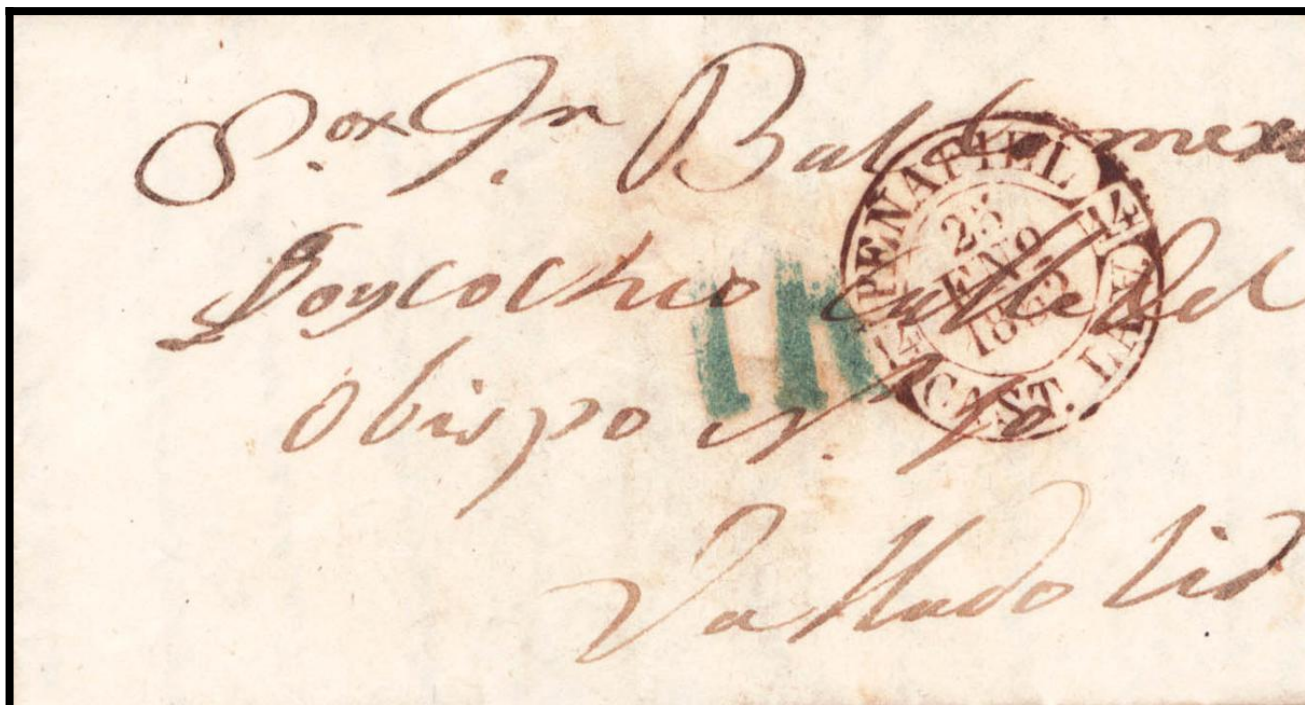 S.or Dn. Baldomero
Goycochea calle del
Obispo N.
Valladolid
PEÑAFIEL
25
ENO
14
14
CAST. LA V.
1R